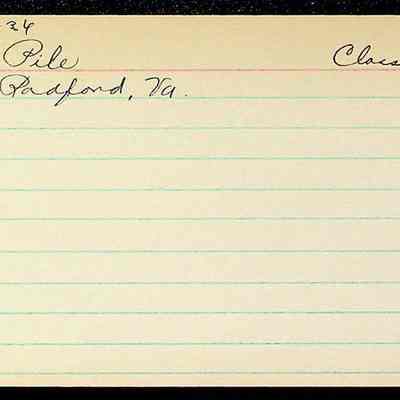 34
Pile Clas
Radford, Va.